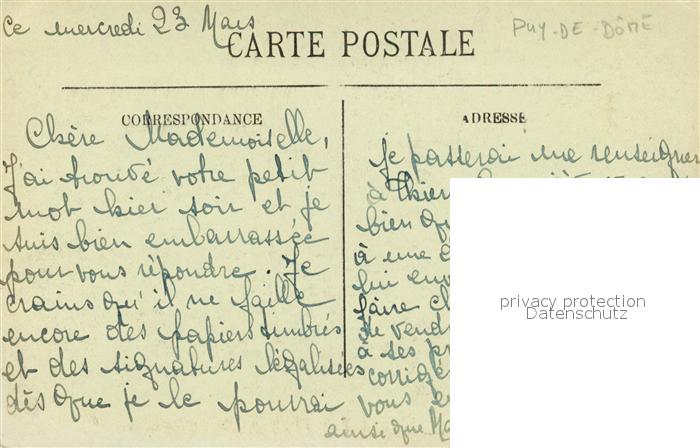 Ce mercredi 23 Mars
PUY-DE-DÔME
CARTE POSTALE
CORRESPONDANCE
ADRESSE
Chère Mademoiselle,
J'ai trouvé votre petit
mot hier soir et je
suis bien embarrassée
pour vous répondre. Je
crains qu'il ne faille
encore des papiers timbrés
et des signatures légalisées
dès que je le pourrai
je passerai me renseigner
à Thiers
bien qu
à une
lui env
faire c
de vend
à ses pr
corrigé
vous e
ainsi que Ma
privacy protection
Datenschutz